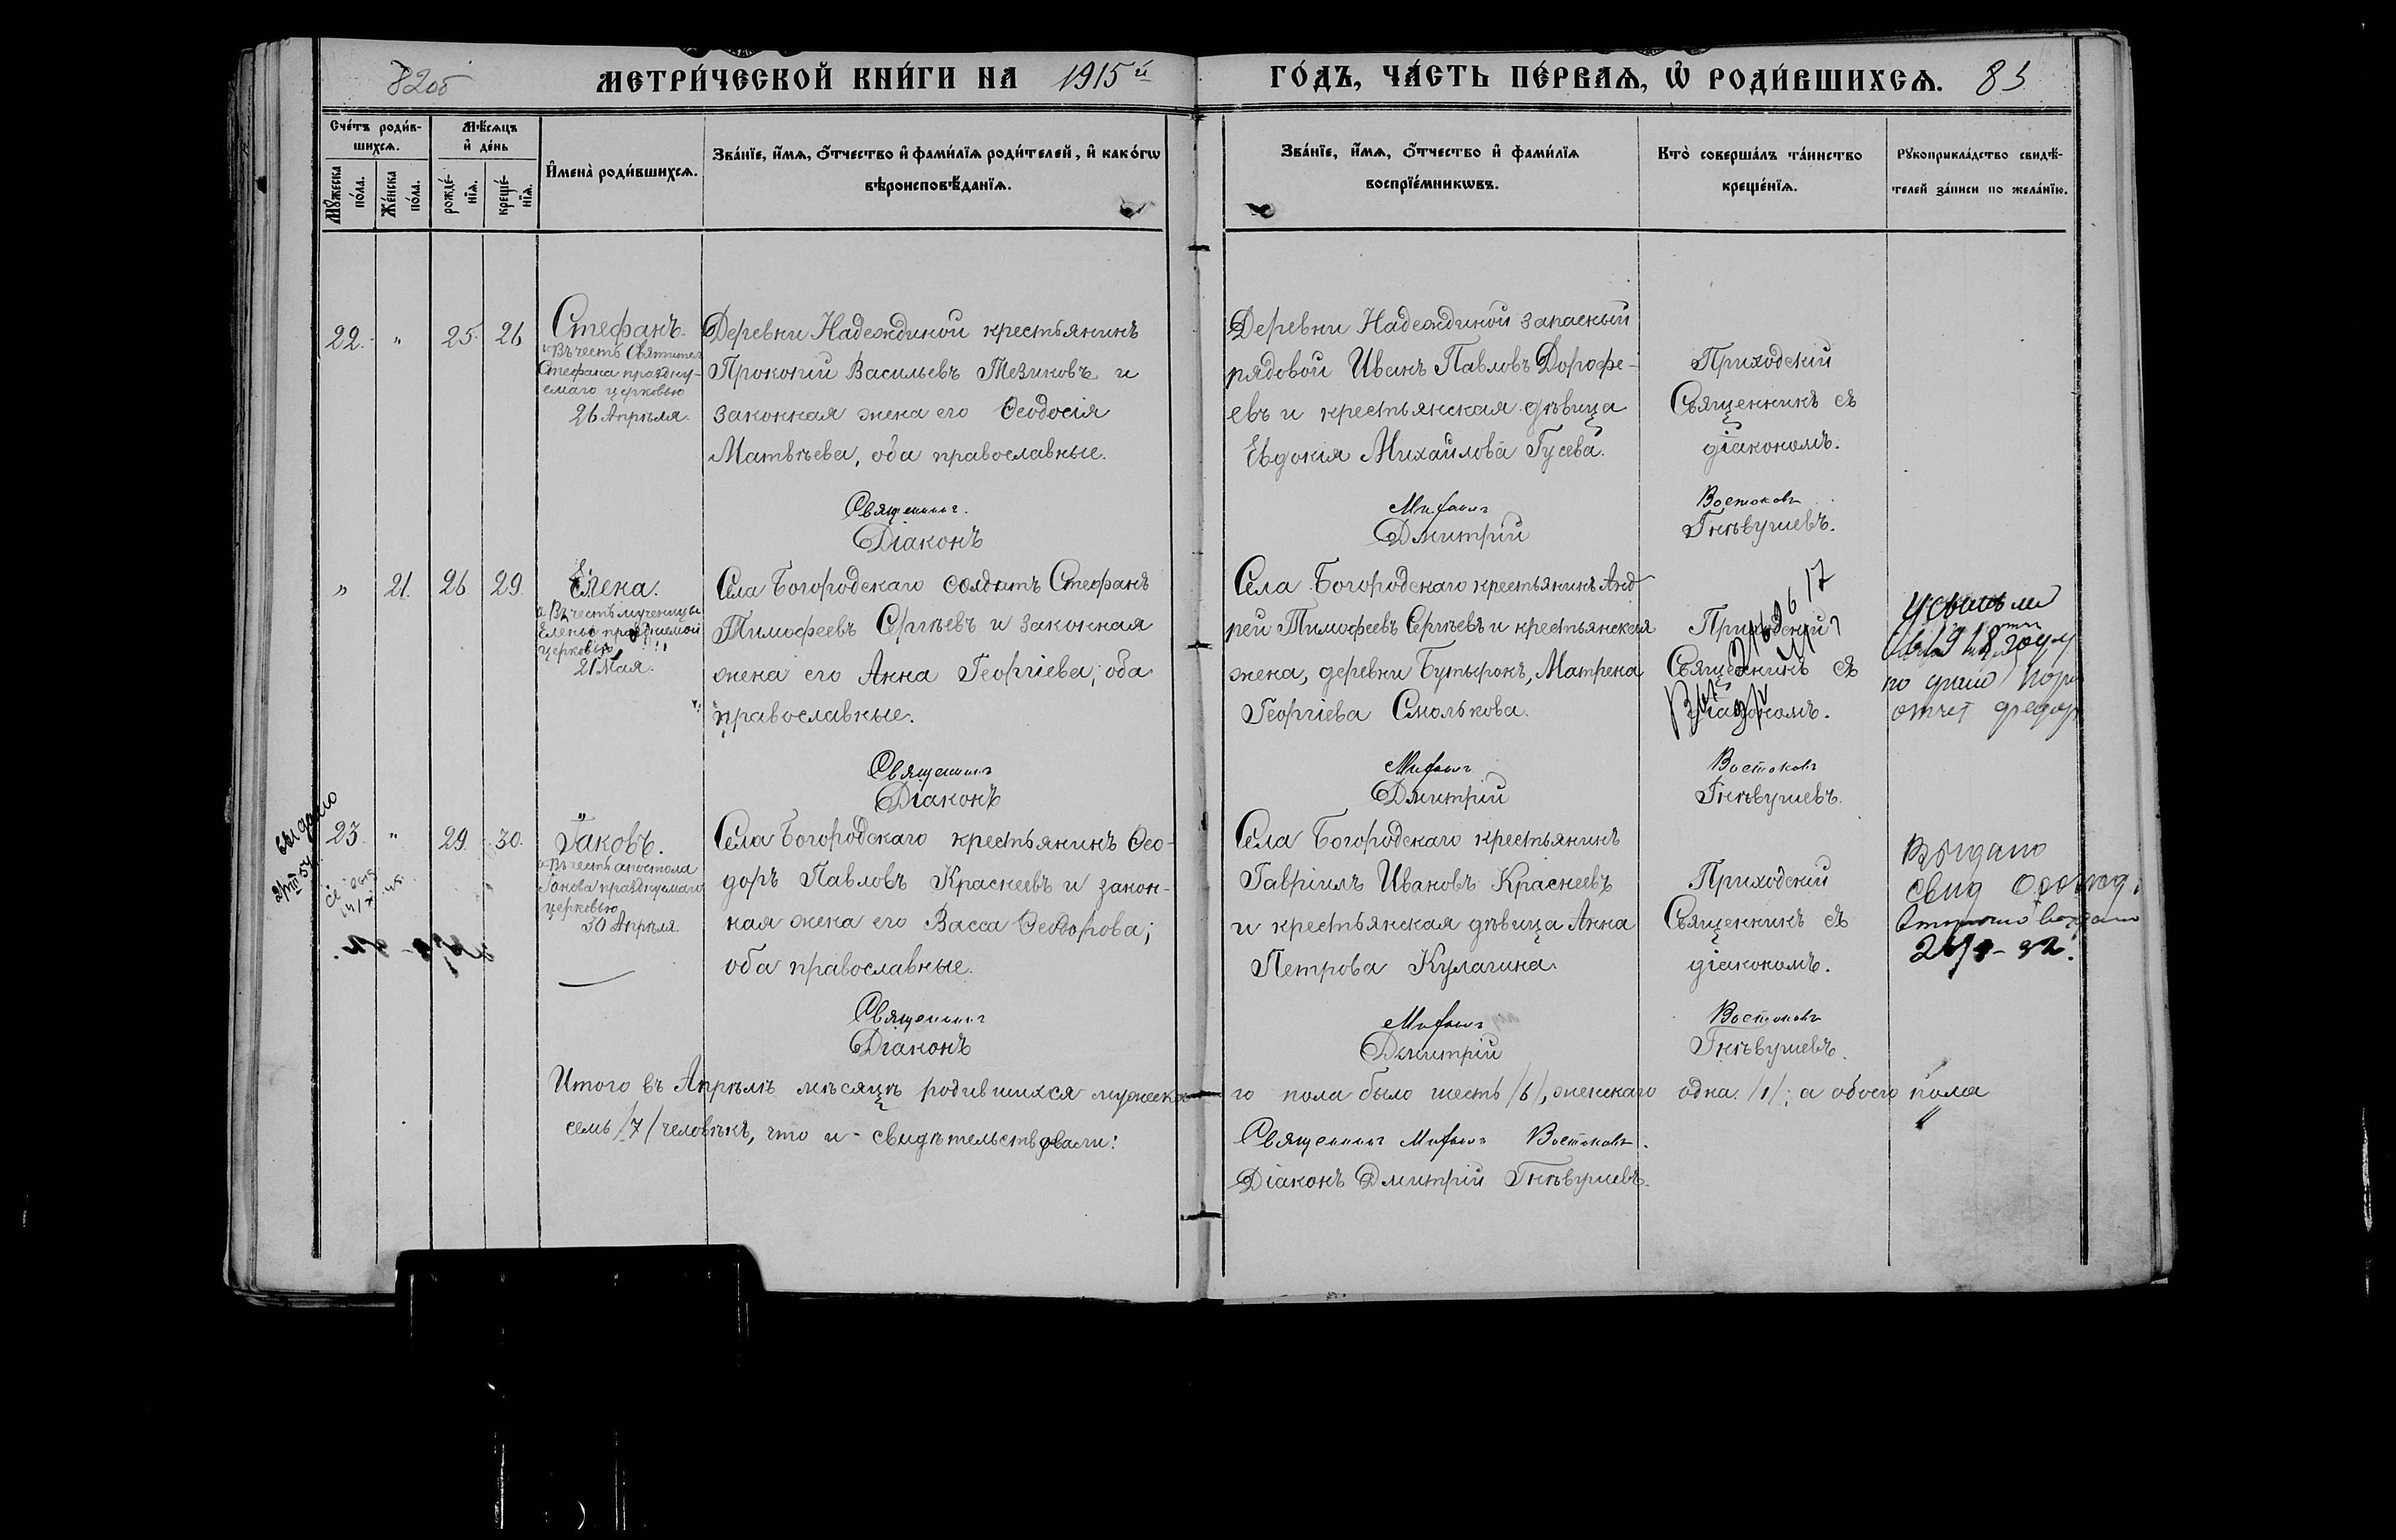 82об
МЕТРИ́ЧЕСКОЙ КНИ́ГИ НА 1915й
ГО́ДЪ, ЧА́СТЬ ПЕ́РВАѦ, Ѡ҆ РОДИ́ВШИХСѦ. 83
Сче́тъ роди́в-
шихсѧ.
Мѣ́сѧцъ
и҆ де́нь
Мꙋ́жеска
по́ла.
Же́нска
по́ла.
рожде́-
нїѧ.
креще́-
нїѧ.
И҆мена̀ роди́вшихсѧ.
Зва́нїе, и҆́мѧ, ѻ҆́тчество и҆ фами́лїѧ роди́телей, и҆ како́гѡ
вѣроисповѣ́данїѧ.
Зва́нїе, и҆́мѧ, ѻ҆́тчество и҆ фами́лїѧ
воспрїе́мникѡвъ.
Кто̀ соверша́лъ та́инство
креще́нїѧ.
Рꙋкоприкла́дство свидѣ́-
телей за́писи по жела́нїю.
22. " 25. 26
Стефанъ.
Въ честь Святителя
Стефана праздну-
емаго церковью
26 Апрѣля.
Деревни Надеждиной крестьянинъ
Прокопій Васильевъ Тезиковъ и
законная жена его Ѳеодосія
Матвѣева, оба православные.
Деревни Надеждиной запасный
рядовой Иванъ Павловъ Дорофе-
евъ и крестьянская дѣвица
Евдокія Михайлова Гусева.
Приходскій
Священникъ съ
діакономъ.
Священникъ
Діаконъ
Дмитрій
Востоковъ
Гнѣвушевъ.
" 21. 26 29.
Елена.
Въ честь мученицы
Елены празднуемой
церковью
21 Мая.
Села Богородскаго солдатъ Стефанъ
Тимофеевъ Сергѣевъ и законная
жена его Анна Георгіева, оба
православные.
Села Богородскаго крестьянинъ Анд-
рей Тимофеевъ Сергѣевъ и крестьянская
жена, деревни Бутырокъ, Матрена
Георгіева Смолькова.
Приходскій
Священникъ съ
діакономъ.
Священникъ
Діаконъ
Дмитрій
Востоковъ
Гнѣвушевъ.
выдано
23. " 29. 30.
Іаковъ.
Въ честь апостола
Іакова празднуемаго
церковью
30 Апрѣля.
Села Богородскаго крестьянинъ Ѳео-
доръ Павловъ Краснеевъ и закон-
ная жена его Васса Ѳеодорова;
оба православные.
Села Богородскаго крестьянинъ
Гавріилъ Ивановъ Краснеевъ
и крестьянская дѣвица Анна
Петрова Кулагина.
Приходскій
Священникъ съ
діакономъ.
Выдано
свид
Священникъ
Діаконъ
Дмитрій
Востоковъ
Гнѣвушевъ.
Итого въ Апрѣлѣ мѣсяцѣ родившихся мужеска-
го пола было шесть /6/, женскаго одна /1/; а обоего пола
семь /7/ человѣкъ, что и свидѣтельствовали:
Священникъ Востоковъ.
Діаконъ Дмитрій Гнѣвушевъ.